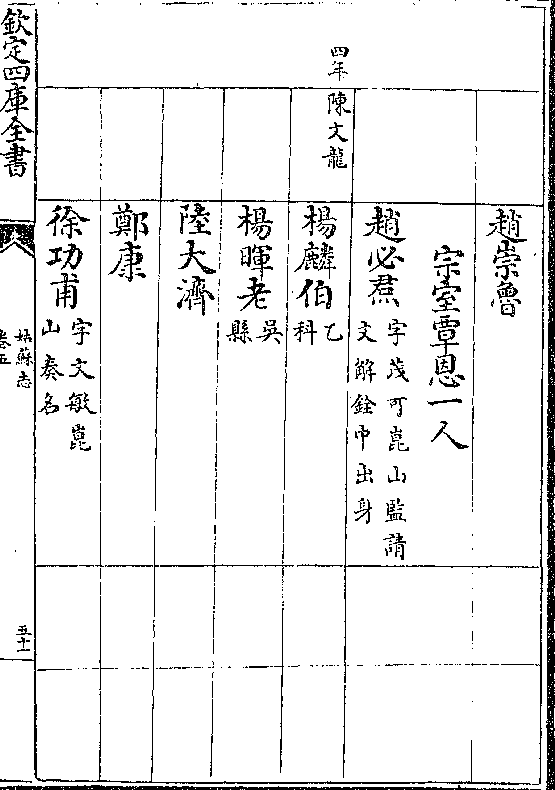 趙崇魯
宗室覃恩一人
趙必𤋮字茂可崑山監請文解銓中出身
四年陳文龍
楊麟伯乙科
楊暉老吳縣
陸大濟
鄭康
徐功甫字文敏崑山奏名
欽定四庫全書
姑蘇志
卷五
五十一